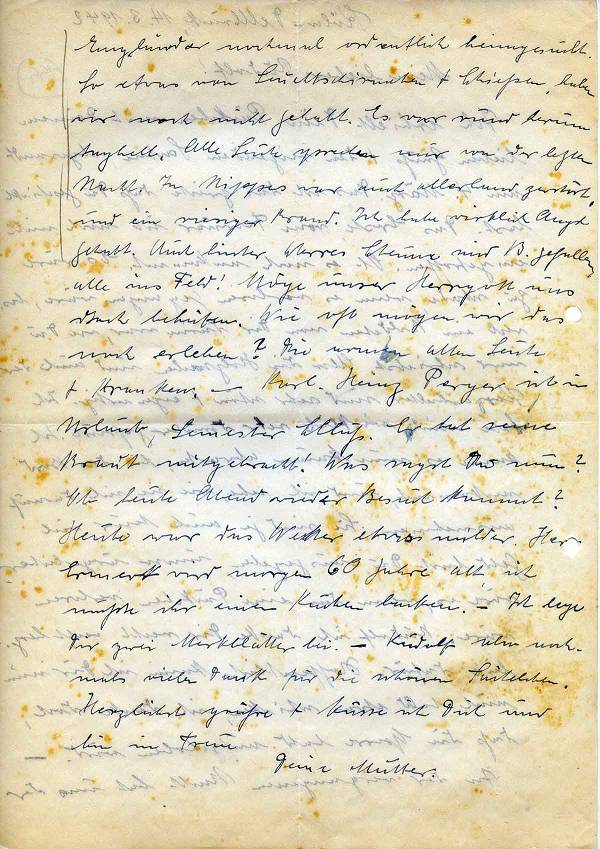 Engländer nochmal ordentlich heimgesucht.
So etwas von Leuchtschirmen + Schießen, haben
wir noch nicht gehabt. Es war rund herum
taghell. Alle Leute sprechen nur von der letzten
Nacht. In Nippes war auch allerhand zerstört,
und ein riesiger Brand. Ich habe wirklich Angst
gehabt. Auch hinter Steune und B. gefallen,
alle ins Feld! Möge unser Herrgott uns
doch behüten. Wie oft mögen wir das
noch erleben? Die armen alten Leute
+ Kranken. — Karl-Heinz Perger ist in
Urlaub, Semester Schluß. Er hat seine
Braut mitgebracht! Was sagst Du nun?
Ob heute Abend wieder Besuch kommt?
Heute war das Wetter etwas milder.
wird morgen 60 Jahre alt, ich
mußte ihr einen Kuchen backen. — Ich lege
Dir zwei Merkblätter bei. — Rudolf also noch-
mals vielen Dank für die schönen
Herzlichst grüße + küsse ich Dich und
bin in Treue
Deine Mutter.